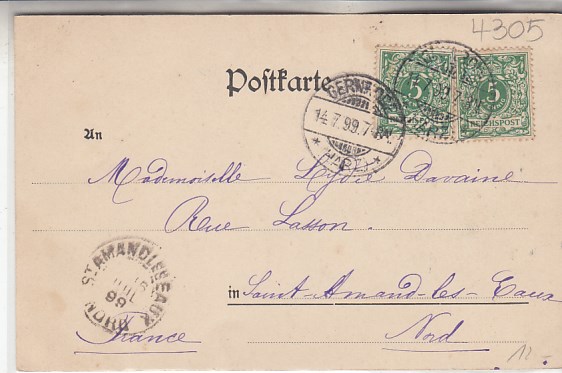 4305
Postkarte
5
5
REICHSPOST
GERNRODE
14.7.99.7-8N.
* (HARZ) *
An
Mademoiselle Lydie Davaine
Rue Lasson.
in Saint-Amand-les-Eaux
Nord
France
ST AMAND LES EAUX
JUIL
99
NORD
12.-